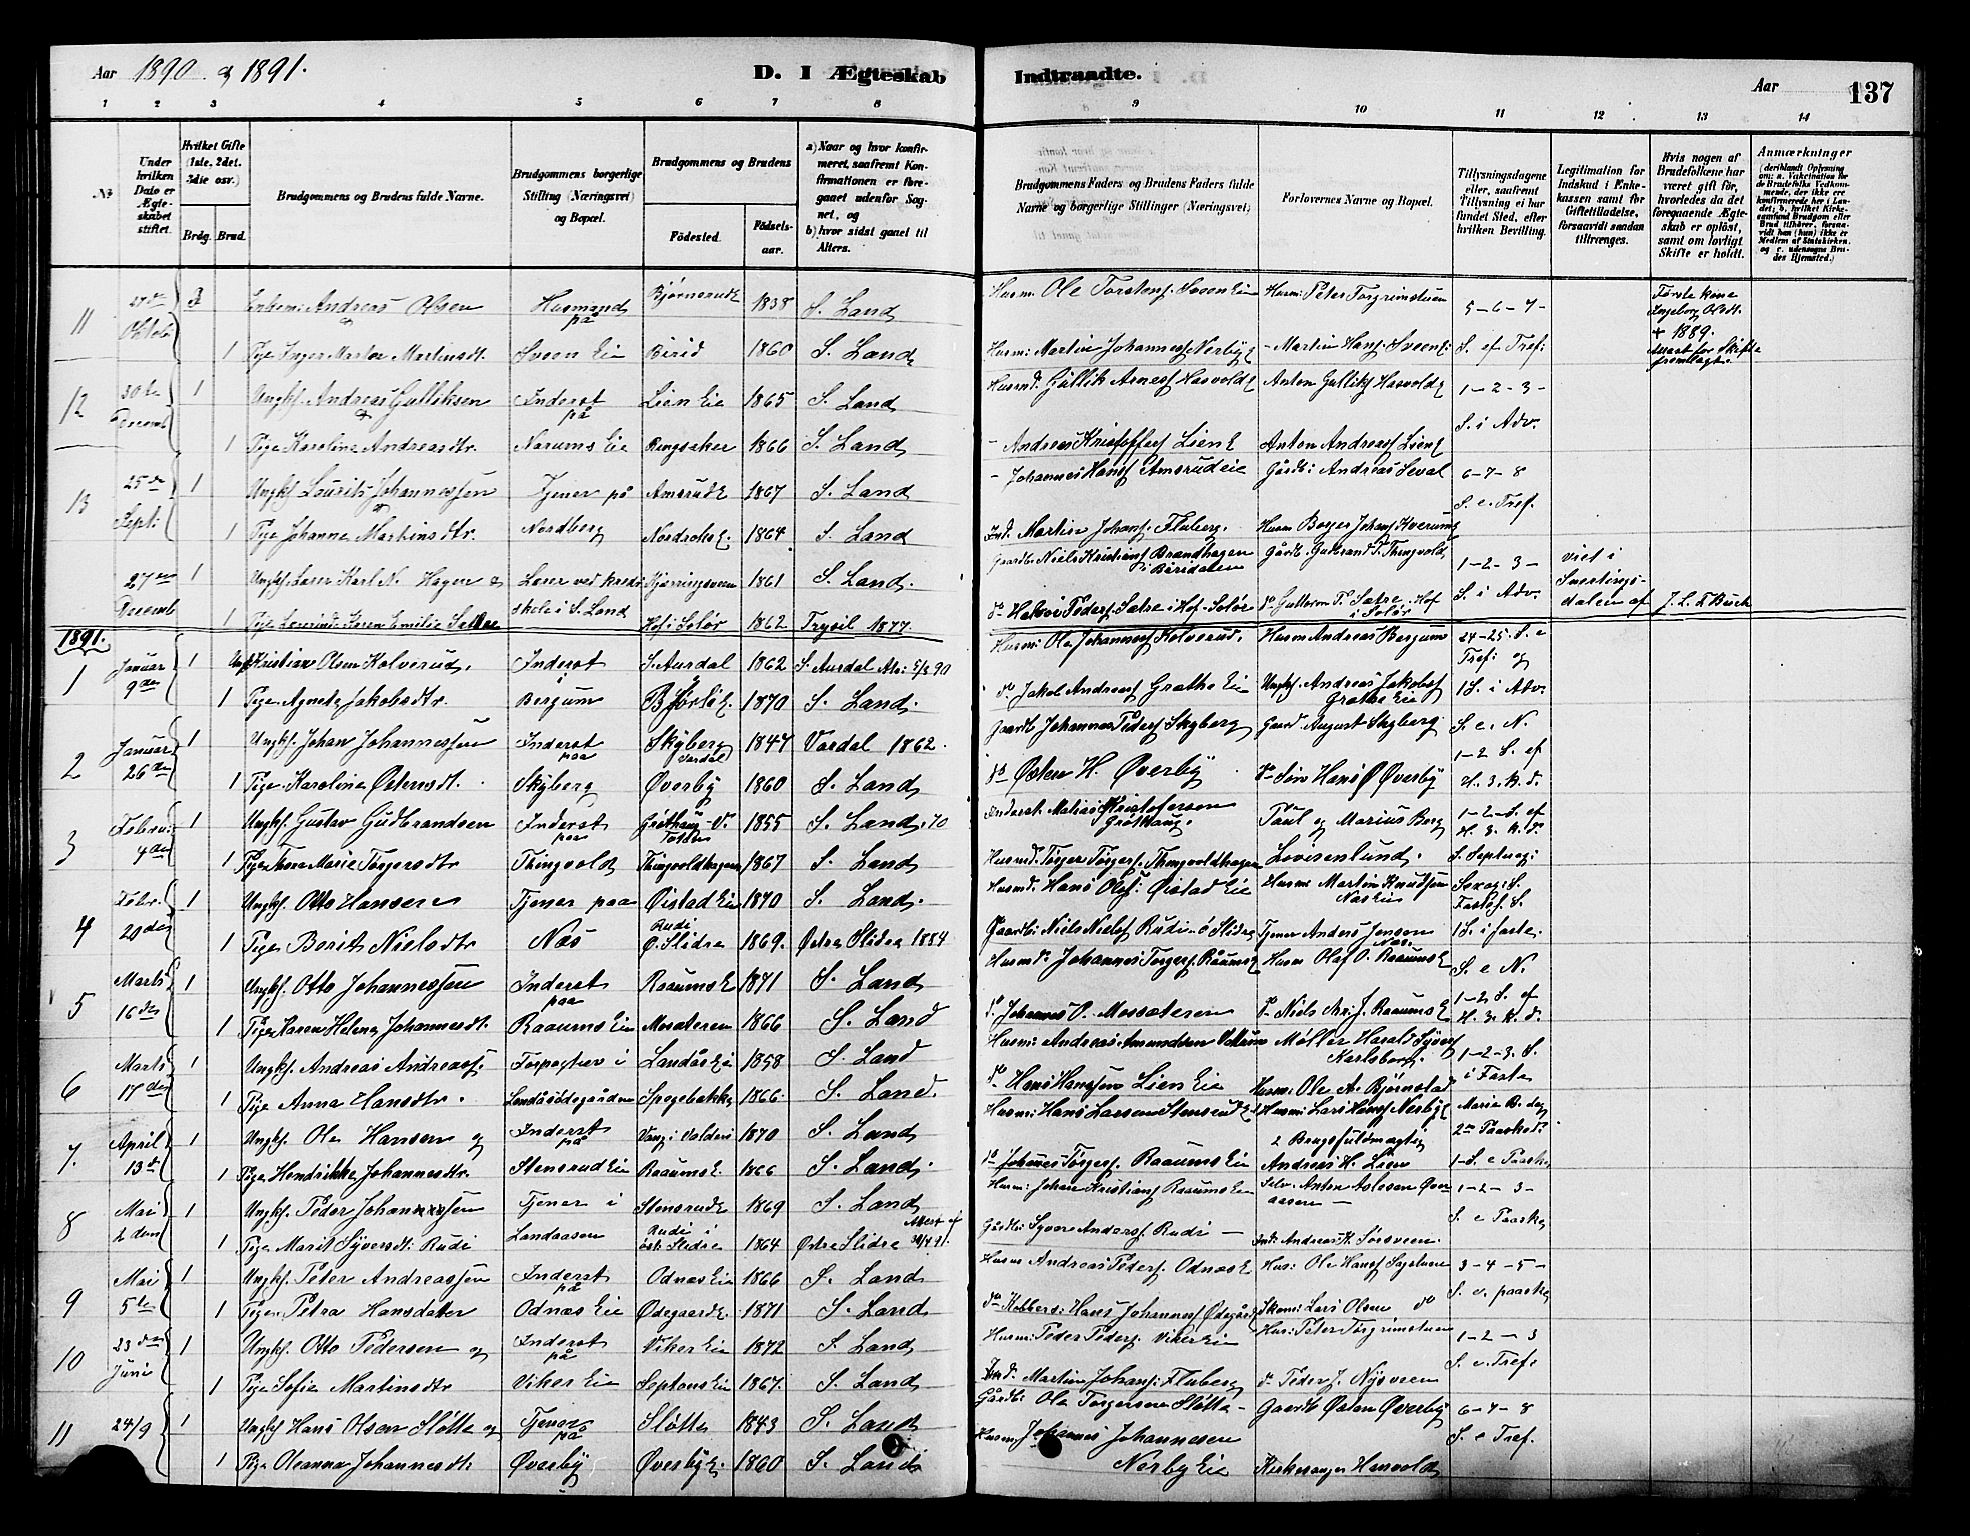 Aar 1890 og 1891.
D. I Ægteskab
Indtraadte.
Aar
137
1 2 3 4 5 6 7 8
9 10 11 12 13 14
No
Under hvilken Dato er Ægteskabet stiftet.
Hvilket Gifte (1ste, 2det, 3die osv.)
Brdg. Brud.
Brudgommens og Brudens fulde Navne.
Brudgommens borgerlige Stilling (Næringsvei) og Bopæl.
Brudgommens og Brudens
Fødested.
Fødselsaar.
a) Naar og hvor konfirmeret, saafremt Konfirmationen er foregaaet udenfor Sognet, og
b) hvor sidst gaaet til Alters.
Brudgommens Faders og Brudens Faders fulde Navne og borgerlige Stillinger (Næringsvei)
Forlovernes Navne og Bopæl.
Tillysningsdagene eller, saafremt Tillysning ei har fundet Sted, efter hvilken Bevilling.
Legitimation for Indskud i Enkekassen samt for Giftetilladelse, forsaavidt saadan tiltrænges.
Hvis nogen af Brudefolkene har været gift før, hvorledes da det foregaaende Ægteskab er opløst, samt om lovligt Skifte er holdt.
Anmærkninger
(deriblandt Oplysning om: a. Vakcination for de Brudefolks Vedkommende, der ikke ere konfirmerede her i Landet; b. hvilket Kirkesamfund Brudgom eller Brud tilhører, forsaavidt han (hun) ikke er Medlem af Statskirken, og c. udensogns Brudes Hjemsted.)
11 27de Oktob 2 Enkem: Andreas Olsen Husmand på Bjørnerud E 1838 S. Land Husm: Ole Torstens. Sveen Eie Husm: Peter Torgrimstuen 5-6-7- Første kone Ingeborg Olsdt. + 1889.
1 Pige Inger Marte Martinsdt. Sveen Eie Birid 1860 S. Land Husm: Martin Johanness. Nerby E - Martin Hans. Sveen E. S. ef Tref: Attest for Skifte fremlagt.
12 30te Decemb 1 Ungk. Andreas Gulliksen Inderst på Lien Eie 1865 S. Land Husmd. Gullik Arnes. Hasvold E Anton Gulliks. Hasvold E 1-2-3-
1 Pige Karoline Andreasdtr. Narums Eie Ringsaker 1866 S. Land - Andreas Kristoffers. Lien E Anton Andreas. Lien E S. i Adv.
13 25de Sept: 1 Ungk. Laurits Johannessen Tjener på Amsrud E 1867 S. Land - Johannes Hans. Amsrudeie Gårdb: Andreas Seval 6-7-8
1 Pige Johanne Martinsdtr. Nordberg 1864 S. Land Ind. Martin Johans. Fluberg. Husm Børger Johans. Kverum E S. e. Tref.
27de Decemb 1 Ungk. Lærer Karl N. Hagen og Lærer ved kreds- Kjørringsveen 1861 S. Land. Gaardb. Niels Kristians. Brandhagen i Biridalen Gårdb. Gulbrand P. Thingvold 1-2-3- viet i Snertingsdalen af J. L. F. Buck
1 Pige Karen Emilie Sætre skole i S. Land Hof i Solør 1862 Trysil 1877. do Halvor Peders. Sætre i Hof-Solør do Guttorm P. Sætre. Hof i Solør S. i Adv.
1891.
1 Januar 9de 1 Ungk. Kristian Olsen Kolverud. Inderst S. Aurdal 1862 S. Aurdal 90 Husm: Ole Johannes. Kolverud. Husm Andreas Bergum 24-25. S. e Tref: og
1 Pige Agnete Jakobsdtr. Bergum 1870 S. Land. do Jakob Andreas. Grøthe Eie Ungk. Andreas Jakobs. Grøthe Eie 1 S. i Adv.
2 Januar 26de 1 Ungk. Johan Johannessen Inderst paa Skyberg Vardal 1847 Vardal 1862. Gaardb Johannes Peders. Skyberg Gaard August Skyberg S. e. N.
1 Pige Karoline Østensdt. Skyberg Øverby 1860 S. Land do Østen H. Øverby do Søn Hans Ø Øverby 1-2 S. ef H. 3. K. d.
3 Februar 4de 1 Ungk. Gustav Gudbrandsen Inderst paa Grøthaug - V. Toten 1855 S. Land Inderst. Matias Kristofersen Grøthaug. Paul og Marius Berg 1-2-S. ef H. 3. K. d.
1 Pige Thora Marie Torgersdtr Thingvold Thingvoldhagen 1867 S. Land Husmd. Torger Torgers. Thingvoldhagen Lovisenlund. S. Septuag:
4 Febr. 20de 1 Ungk. Otto Hansen Tjener paa Øistad Eie 1870 S. Land. Husmd. Hans Ols. Øistad Eie Husm Martin Knudsen Nas Eie Sexag: S. Fastel. S.
1 Pige Berit Nielsdtr Nas Rudi Ø. Slidre 1869. Østre Slidre 1884 Gaardb: Niels Niels. Rudi ø Slidre Tjener Anders Jensen Nas. 1 S. i faste.
5 Marts 16de 1 Ungk. Otto Johannessen Inderst paa Raaums E 1871 S. Land Husmd. Johannes Torgers. Raaums E Husm Olaf O. Raaums E S. e N.
1 Pige Karen Helene Johannesdt. Raaums Eie Messeteren 1866 S. Land do Johannes O. Messeteren do Niels Ar. J. Raaums E 1-2 S. ef H. 3. K. d.
6 Marts 17de 1 Ungk. Andreas Andreass. Forpagter i Landås Eie 1858 S. Land Husm: Andreas Amundsen Møller Harald Syvers. Karlsborg. 1-2-3. S. i Faste
1 Pige Anna Hansdtr. Landåsødegården Spegebakke 1866. S. Land. do Hans Hanssen Lien Eie Husm: Ole A. Bjørnstad Marie B. dag
7. April 13de 1 Ungk. Ole Hansen og Inderst på Vang i Valders 1870 S. Land Husm: Hans Larsen Stensrud E Husm: Lars Hans. Nerby E 2den Paaskd.
1 Pige Hendrikke Johannesdtr. Stensrud Eie Raaums E. 1866 S. Land. do Johannes Torgers. Raaums Eie Brugsfuldmægtig Andreas H. Lien 1-S. e Paaske
8 Mai 2den 1 Ungk. Peder Johannessen Tjener i Stensrud E 1869 S. Land Husm: Johan Kristians. Raaums Eie Anton Aslesen 1-2-3-
1 Pige Marit Syversdt: Rudi Landaasen Rudi i øst: Slidre 1864 Østre Slidre Attest af 30/4 91. Gårdb: Syver Anders. Rudi - Ind: Andreas K. Sørsveen. S. e Paaske
9 Mai 5te 1 Ungk. Peter Andreassen Inderst på Odnæs Eie 1866 S. Land Husm Andreas Peders. Odnæs E Hus: Ole Hans. Sagstuen 3-4-5-
1 Pige Petra Hansdatter Odnæs Eie Ødegaard E 1871 S. Land do Kobbers: Hans Johannes. Ødegård E Skom: Lars Olsen do S. e. paaske
10 23de Juni 1 Ungk. Otto Pedersen og Inderst på Viker Eie 1872 S. Land Husm: Peder Peders. Viker Eie Hus: Peter Torgrimstuen 1-2-3
1 Pige Sofie Martinsdtr Viker Eie Septons Eie 1867. S. Land Ind. Martin Johans: Fluberg do Peder J. Nysveen S. e. Tref:
11 24/9 1 Ungk Hans Olsen Sløtte og Tjener på Sløtte 1843 S. Land Gårdb: Ole Torgersen Sløtte - Gaardb Østen Øverby 6-7-8
1 Pige Oleanna Johannesdt. Øverby Øverby E. 1860 S. Land Husm Johannes Johannesen Nerby Eie Kirkesanger Hasvold S. e Tref.